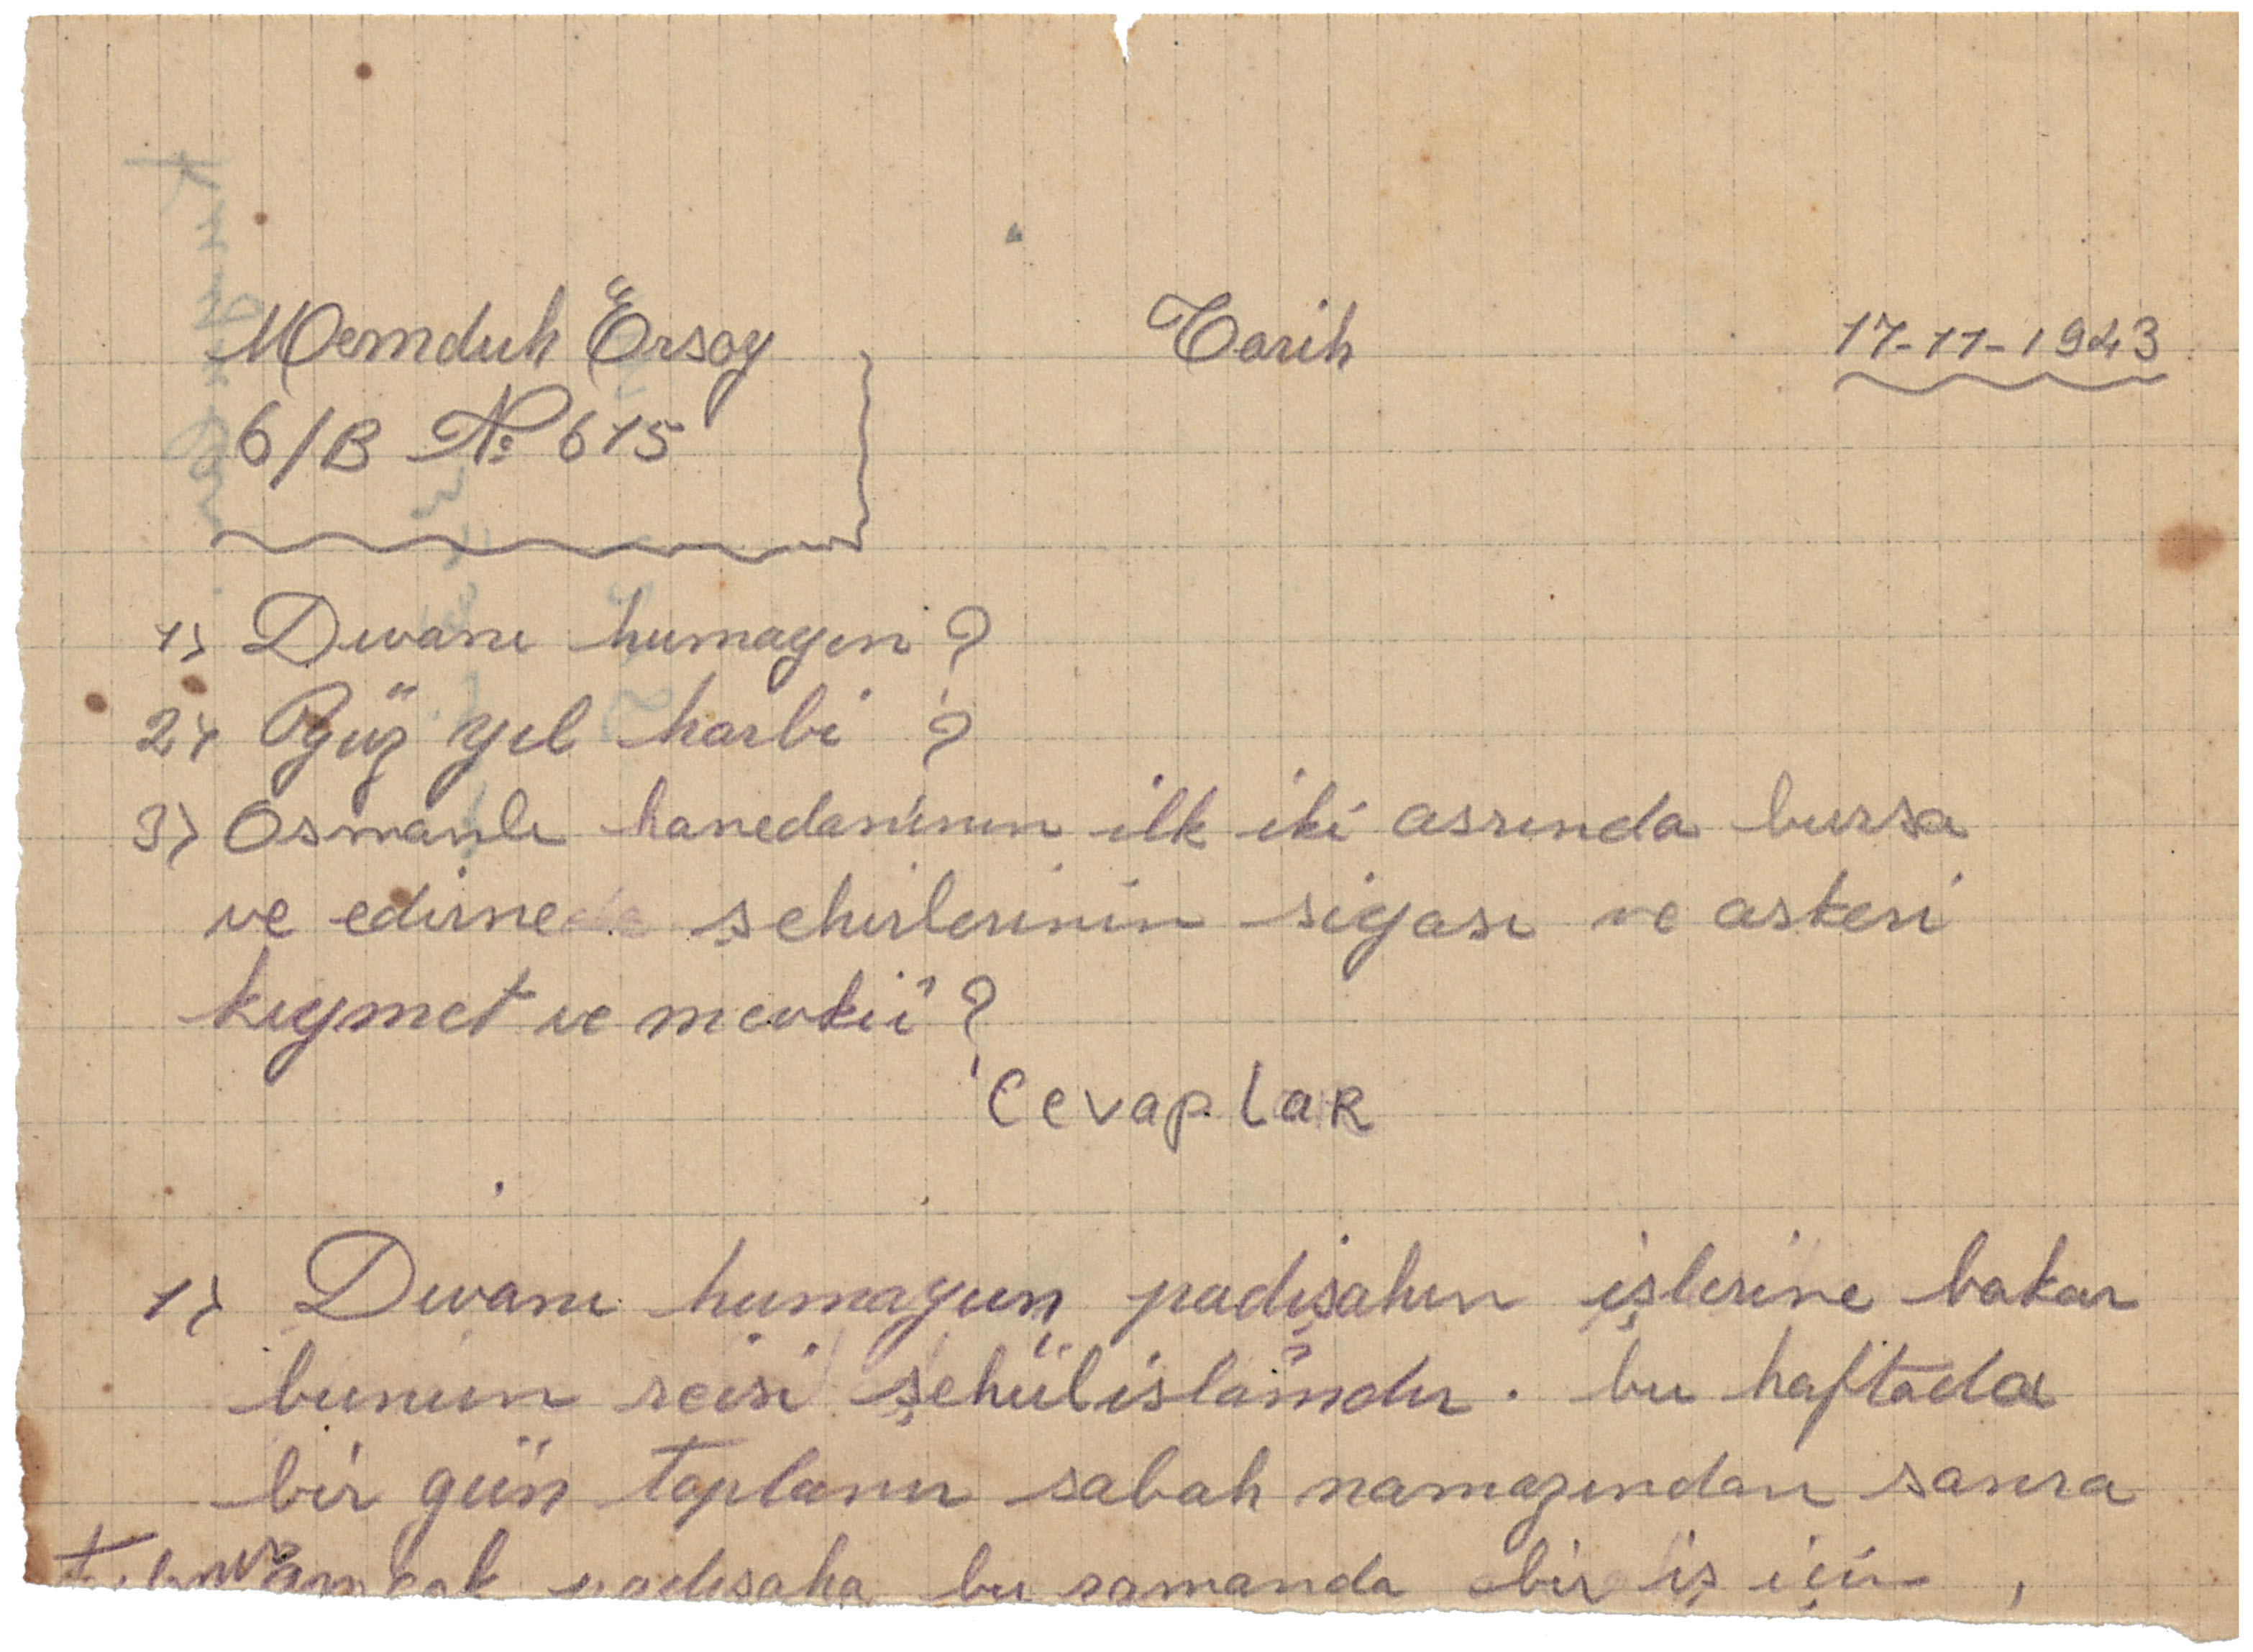 Memduh Ersoy Tarih 17-11-1943
6/B № 615
1) Divanı humayın?
2) Yüz yıl harbi?
3) Osmanlı hanedanının ilk iki asrında bursa
ve edirne şehirlerinin siyası ve askeri
kıymet ve mevkii?
CevaplaR
1) Divanı humayun padişahın işlerine bakar
bunun reisi şehülislâmdır. bu haftada
bir gün toplanır sabah namazından sanra
padışaha bu zamanda bir iş için